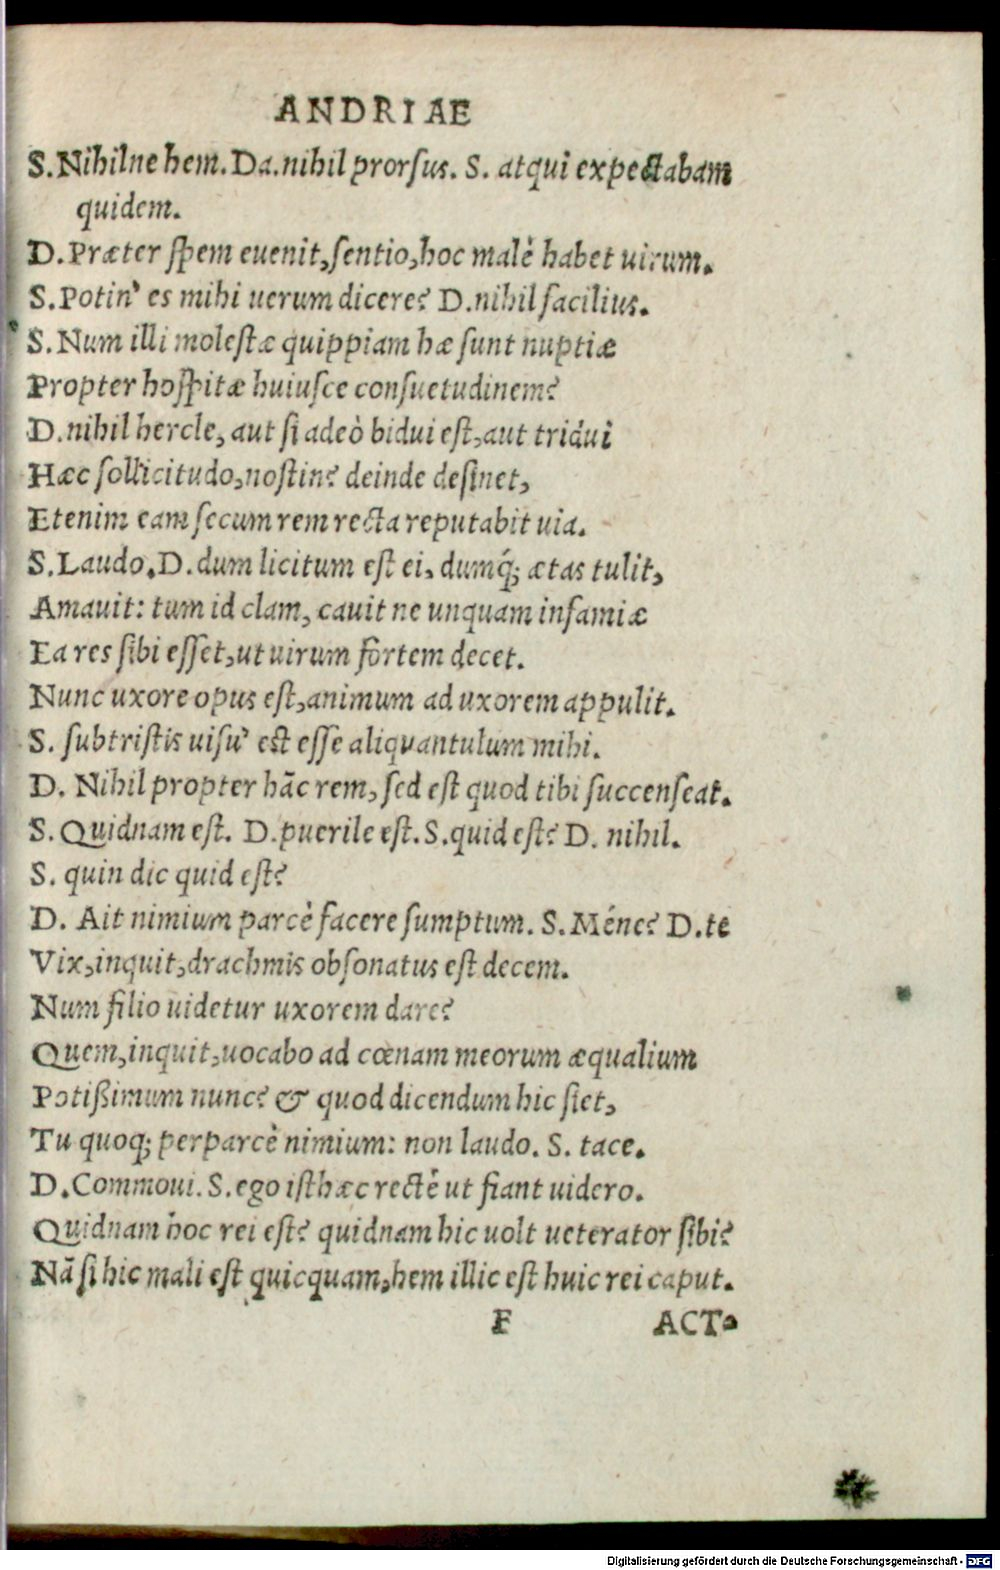 ANDRIAE
S.Nihilne hem. Da.nihil prorsus. S. atqui expectabam
quidem.
D.Præter spem euenit,sentio,hoc malè habet uirum.
S.Potin' es mihi uerum dicere? D.nihil facilius.
S.Num illi molestæ quippiam hæ sunt nuptiæ
Propter hospitæ huiusce consuetudinem?
D.nihil hercle, aut si adeò bidui est,aut tridui
Hæc sollicitudo,nostin? deinde desinet,
Etenim eam secum rem recta reputabit uia.
S.Laudo.D.dum licitum est ei, dumq́; ætas tulit,
Amauit: tum id clam, cauit ne unquam infamiæ
Ea res sibi esset,ut uirum fortem decet.
Nunc uxore opus est,animum ad uxorem appulit.
S. subtristis uisu' est esse aliquantulum mihi.
D. Nihil propter hāc rem, sed est quod tibi succenseat.
S.Quidnam est. D.puerile est.S.quid est? D. nihil.
S. quin dic quid est?
D. Ait nimium parcè facere sumptum. S.Méne? D.te
Vix,inquit,drachmis obsonatus est decem.
Num filio uidetur uxorem dare?
Quem,inquit,uocabo ad cœnam meorum æqualium
Potißimum nunc? & quod dicendum hic siet,
Tu quoq; perparcè nimium: non laudo. S. tace.
D.Commoui. S.ego isthæc rectè ut fiant uidero.
Quidnam hoc rei est? quidnam hic uolt ueterator sibi?
Nā si hic mali est quicquam,hem illic est huic rei caput.
F ACT.
Digitalisierung gefördert durch die Deutsche Forschungsgemeinschaft - DFG